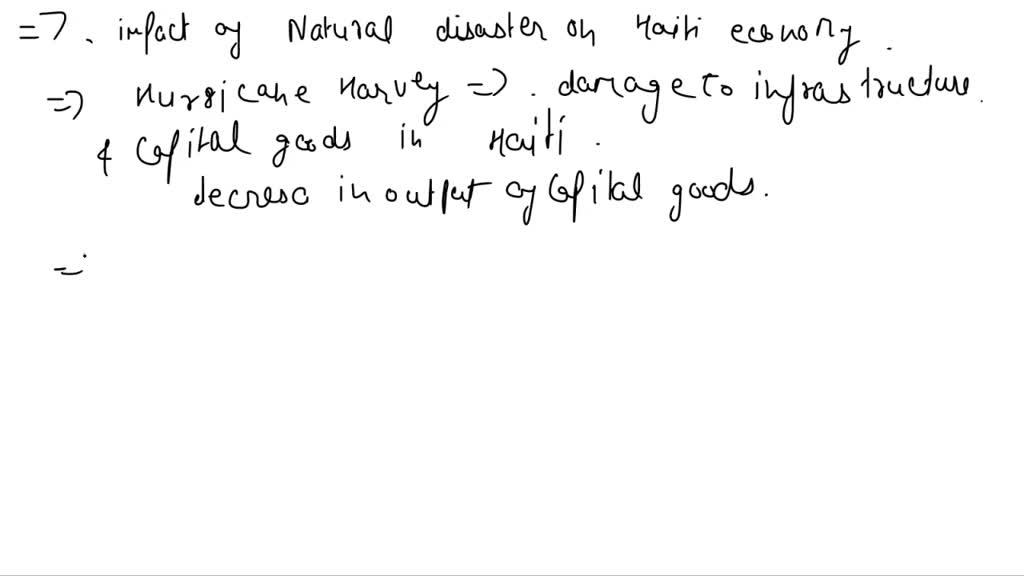 => . impact of Natural disaster on Haiti economy .
=> Hurricane Harvey => . damage to infrastructure .
& Capital goods in Haiti .
decrese in output of Capital goods .
=>